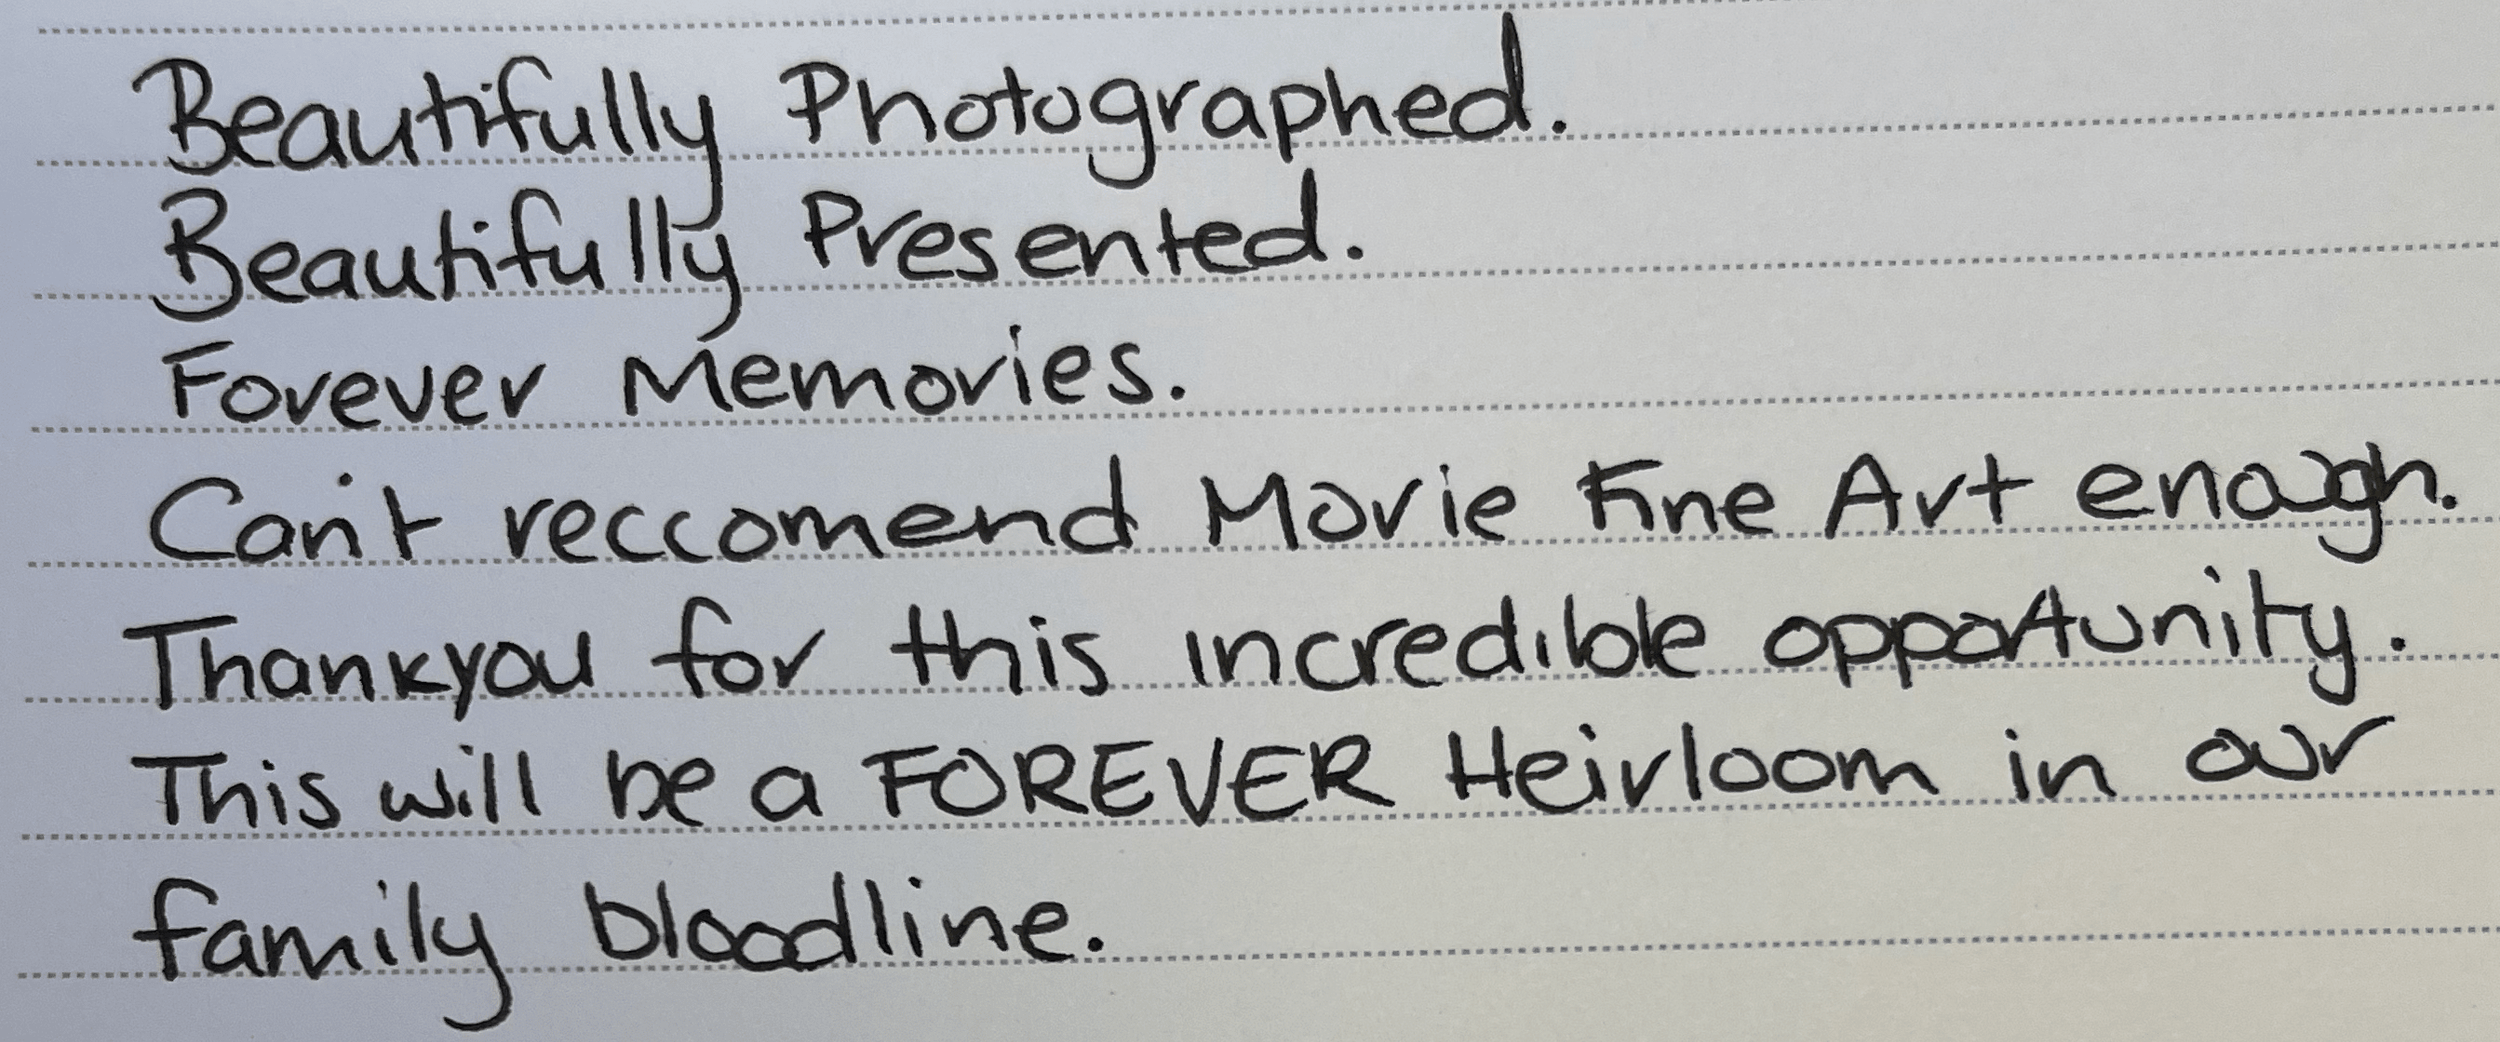 Beautifully Photographed.
Beautifully Presented.
Forever Memories.
Can't reccomend Movie Fine Art enough.
Thankyou for this incredible opportunity.
This will be a FOREVER Heirloom in our
family bloodline.